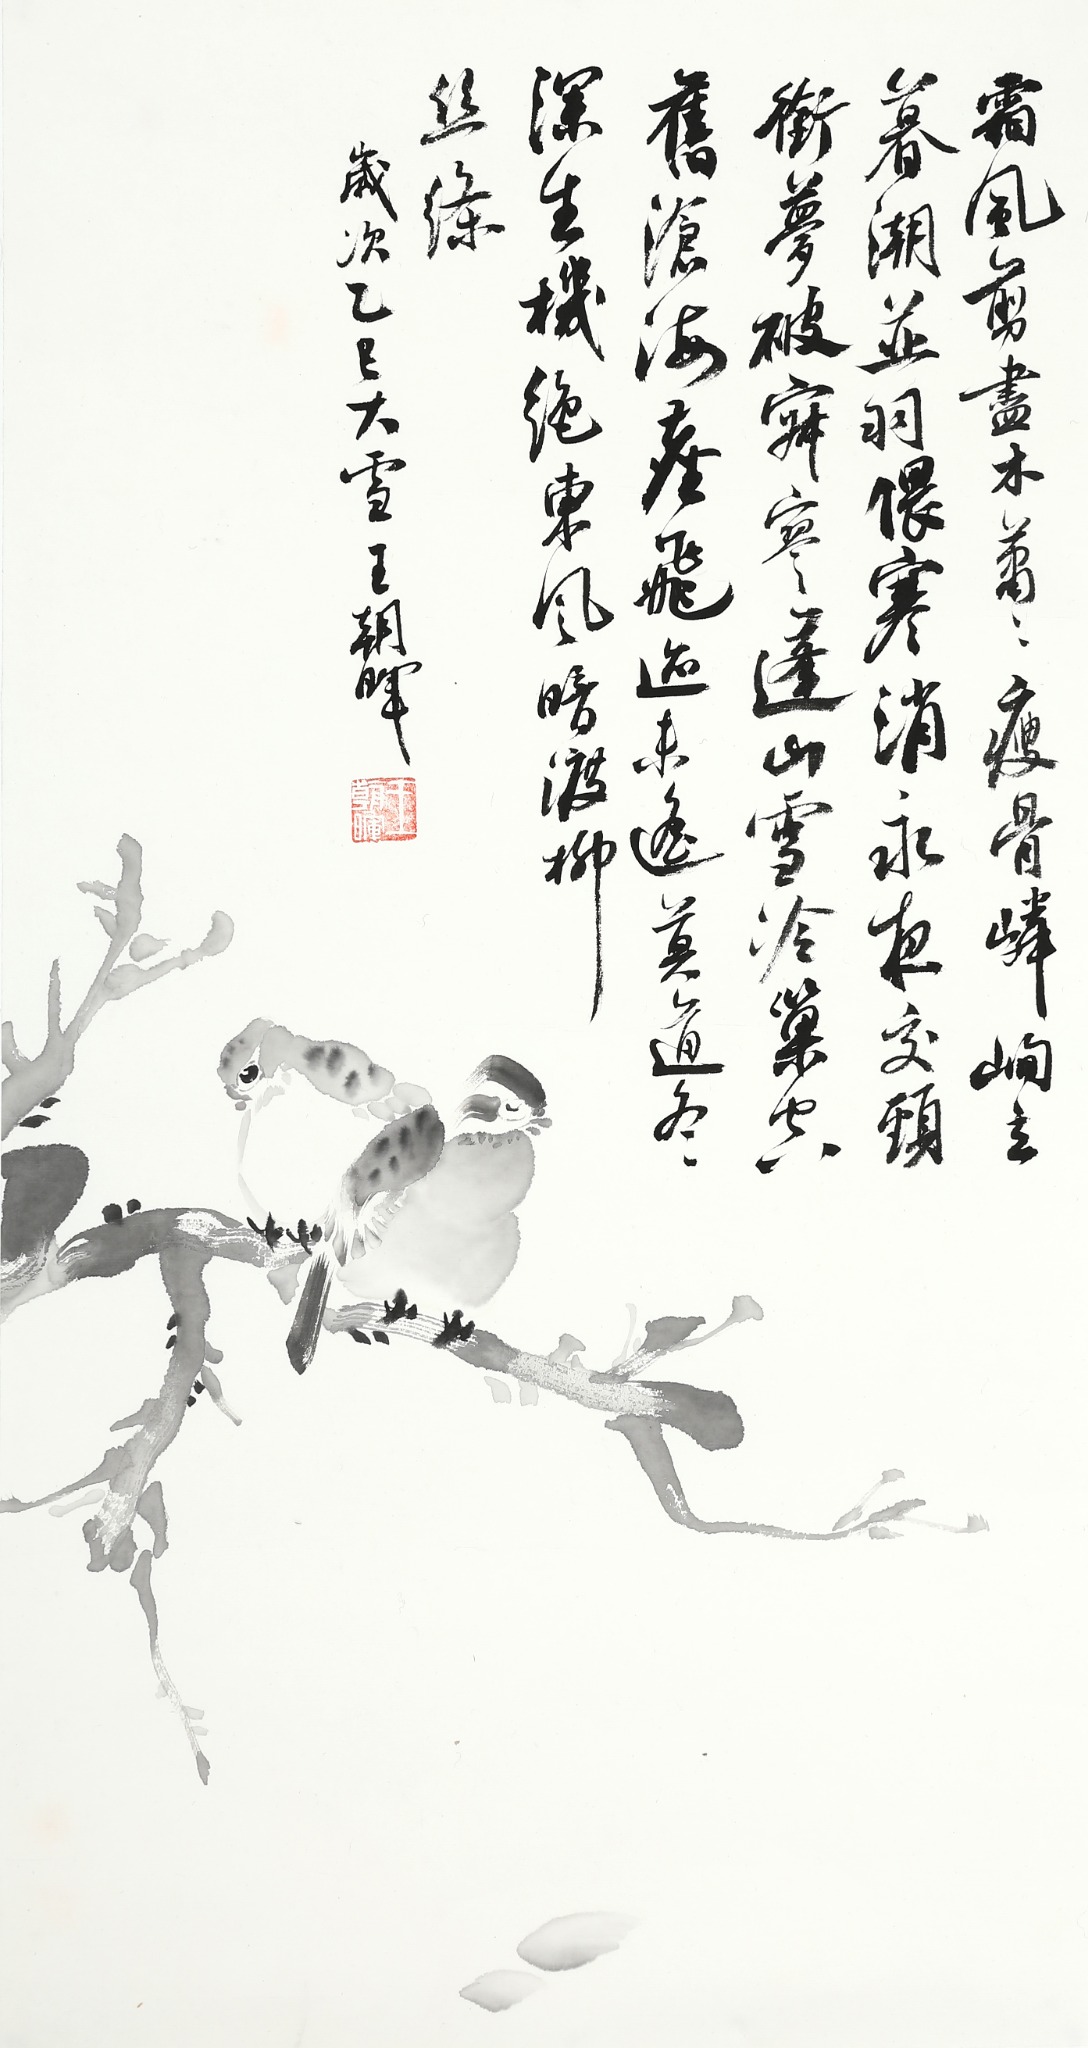 霜風剪盡木蕭〻瘦骨嶙峋立
暮潮並羽偎寒消永夜交頸
銜夢破寂寥蓬山雪冷巢空
舊滄海塵飛迹未遙莫道冬
深生機絕東風暗渡柳
絲縧
歲次乙巳大雪王朝暉
王朝暉